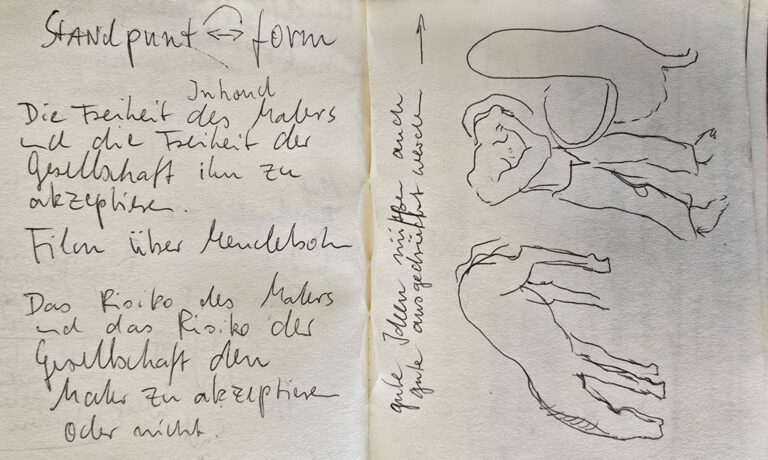 Standpunt ↔ form
Inhoud
Die Freiheit des Malers
und die Freiheit der
Gesellschaft ihn zu
akzeptieren.
Film über Mendelsohn
Das Risiko des Malers
und das Risiko der
Gesellschaft den
Maler zu akzeptieren
oder nicht.
gute Ideen müssen auch
gute ausgedrückt werden →